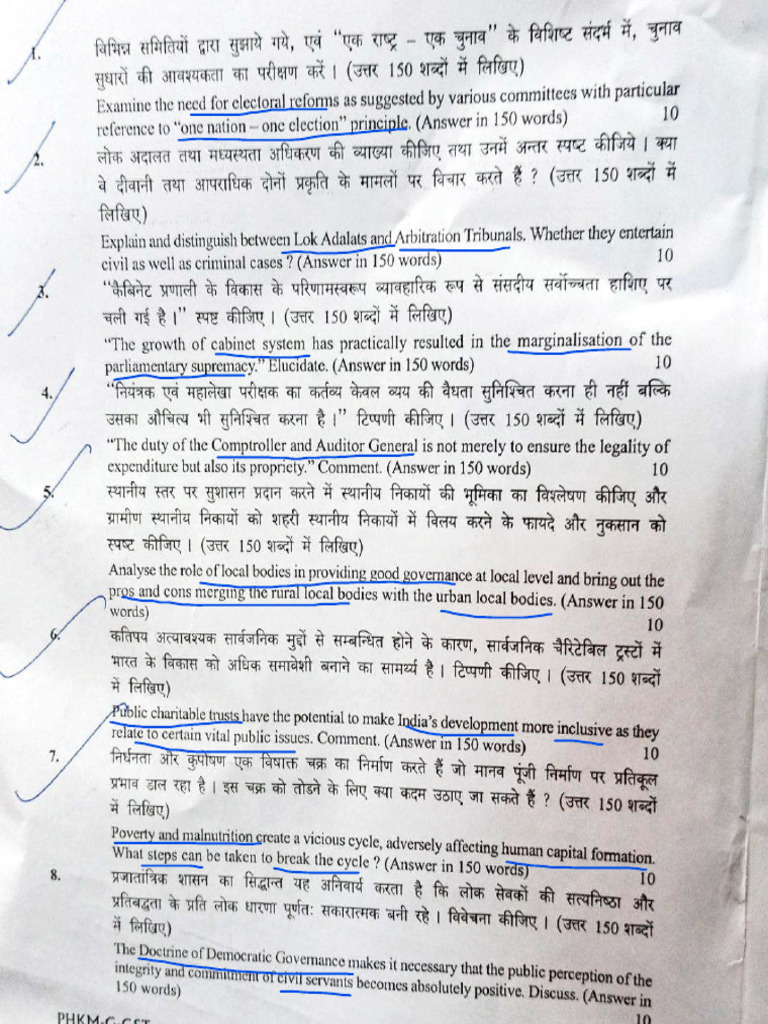 1. विभिन्न समितियों द्वारा सुझाये गये, एवं “एक राष्ट्र – एक चुनाव” के विशिष्ट संदर्भ में, चुनाव
सुधारों की आवश्यकता का परीक्षण करें । (उत्तर 150 शब्दों में लिखिए)
Examine the need for electoral reforms as suggested by various committees with particular
reference to “one nation – one election” principle. (Answer in 150 words) 10
2. लोक अदालत तथा मध्यस्थता अधिकरण की व्याख्या कीजिए तथा उनमें अन्तर स्पष्ट कीजिये । क्या
वे दीवानी तथा आपराधिक दोनों प्रकृति के मामलों पर विचार करते हैं ? (उत्तर 150 शब्दों में
लिखिए)
Explain and distinguish between Lok Adalats and Arbitration Tribunals. Whether they entertain
civil as well as criminal cases ? (Answer in 150 words) 10
3. “कैबिनेट प्रणाली के विकास के परिणामस्वरूप व्यावहारिक रूप से संसदीय सर्वोच्चता हाशिए पर
चली गई है ।” स्पष्ट कीजिए । (उत्तर 150 शब्दों में लिखिए)
“The growth of cabinet system has practically resulted in the marginalisation of the
parliamentary supremacy.” Elucidate. (Answer in 150 words) 10
4. “नियंत्रक एवं महालेखा परीक्षक का कर्तव्य केवल व्यय की वैधता सुनिश्चित करना ही नहीं बल्कि
उसका औचित्य भी सुनिश्चित करना है ।” टिप्पणी कीजिए । (उत्तर 150 शब्दों में लिखिए)
“The duty of the Comptroller and Auditor General is not merely to ensure the legality of
expenditure but also its propriety.” Comment. (Answer in 150 words) 10
5. स्थानीय स्तर पर सुशासन प्रदान करने में स्थानीय निकायों की भूमिका का विश्लेषण कीजिए और
ग्रामीण स्थानीय निकायों को शहरी स्थानीय निकायों में विलय करने के फायदे और नुकसान को
स्पष्ट कीजिए । (उत्तर 150 शब्दों में लिखिए)
Analyse the role of local bodies in providing good governance at local level and bring out the
pros and cons merging the rural local bodies with the urban local bodies. (Answer in 150
words) 10
6. कतिपय अत्यावश्यक सार्वजनिक मुद्दों से सम्बन्धित होने के कारण, सार्वजनिक चैरिटेबिल ट्रस्टों में
भारत के विकास को अधिक समावेशी बनाने का सामर्थ्य है । टिप्पणी कीजिए । (उत्तर 150 शब्दों
में लिखिए)
Public charitable trusts have the potential to make India’s development more inclusive as they
relate to certain vital public issues. Comment. (Answer in 150 words) 10
7. निर्धनता और कुपोषण एक विषाक्त चक्र का निर्माण करते हैं जो मानव पूंजी निर्माण पर प्रतिकूल
प्रभाव डाल रहा है । इस चक्र को तोडने के लिए क्या कदम उठाए जा सकते हैं ? (उत्तर 150 शब्दों
में लिखिए)
Poverty and malnutrition create a vicious cycle, adversely affecting human capital formation.
What steps can be taken to break the cycle ? (Answer in 150 words) 10
8. प्रजातांत्रिक शासन का सिद्धान्त यह अनिवार्य करता है कि लोक सेवकों की सत्यनिष्ठा और
प्रतिबद्धता के प्रति लोक धारणा पूर्णतः सकारात्मक बनी रहे । विवेचना कीजिए । (उत्तर 150 शब्दों
में लिखिए)
The Doctrine of Democratic Governance makes it necessary that the public perception of the
integrity and commitment of civil servants becomes absolutely positive. Discuss. (Answer in
150 words) 10